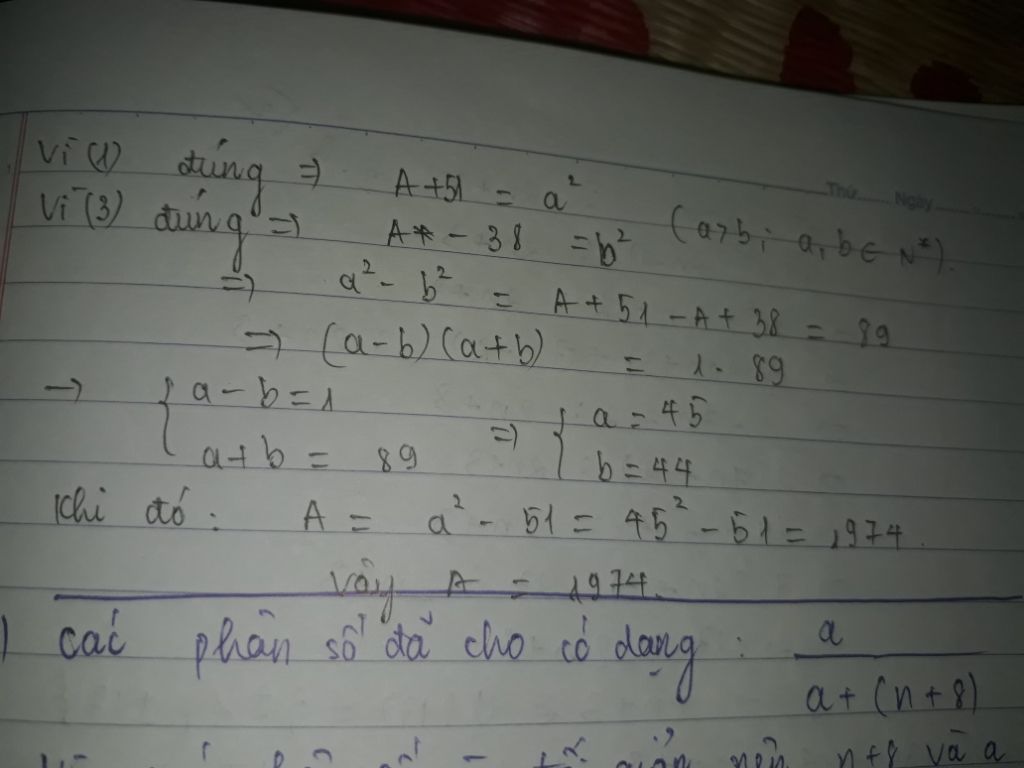 Thứ...... Ngày..........
Vì (1) đúng ⇒ A+51 = a²
Vì (3) đúng ⇒ A - 38 = b² (a>b; a, b ∈ N*).
⇒ a² - b² = A + 51 - A + 38 = 89
⇒ (a-b)(a+b) = 1. 89
→ { a - b = 1 ⇒ { a = 45
a+b = 89 b = 44
Khi đó: A = a² - 51 = 45² - 51 = 1974.
Vậy A = 1974.
) các phân số đã cho có dạng: a / a + (n+8)
nên n+8 và a